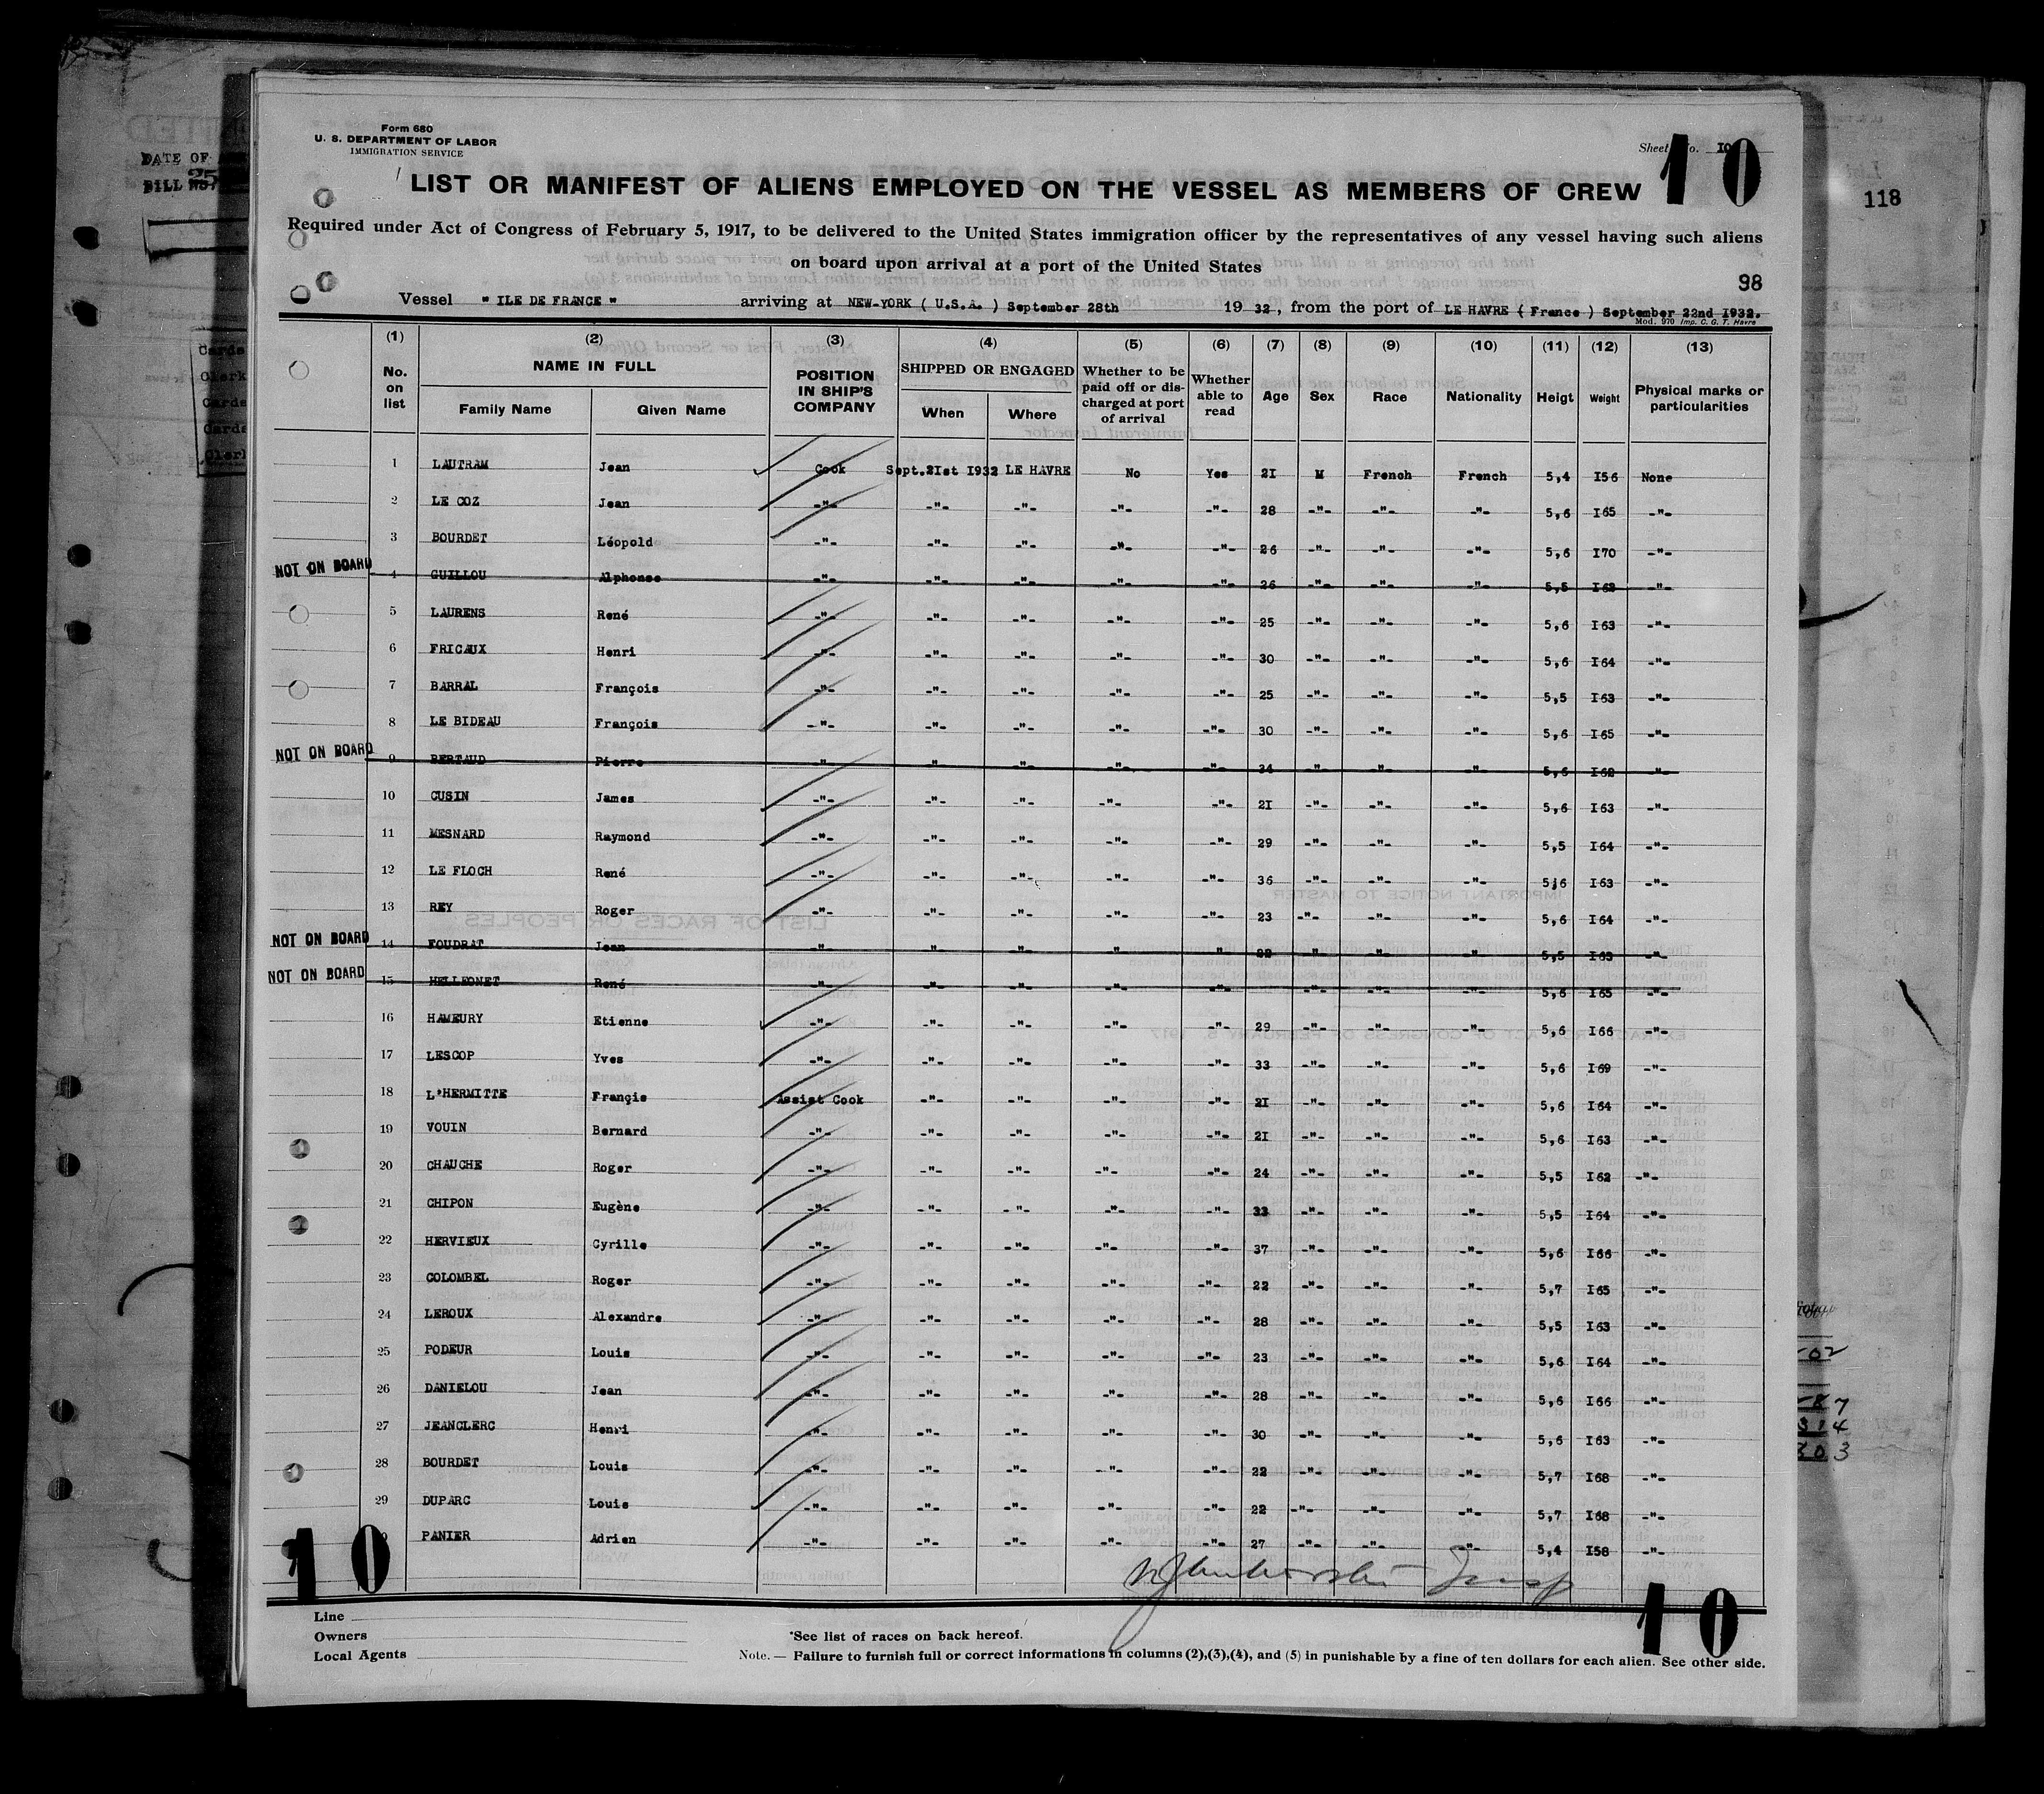 Form 680
U. S. DEPARTMENT OF LABOR
IMMIGRATION SERVICE
Sheet No. 10
10
118
DATE OF
BILL No. 25
LIST OR MANIFEST OF ALIENS EMPLOYED ON THE VESSEL AS MEMBERS OF CREW
Required under Act of Congress of February 5, 1917, to be delivered to the United States immigration officer by the representatives of any vessel having such aliens
on board upon arrival at a port of the United States
98
Vessel " ILE DE FRANCE " arriving at NEW-YORK ( U.S.A. ) September 28th 19 32, from the port of LE HAVRE ( France ) September 22nd I932.
Mod. 970 Imp. C. G. T. Havre
(1) (2) (3) (4) (5) (6) (7) (8) (9) (10) (11) (12) (13)
No. on list NAME IN FULL Family Name Given Name POSITION IN SHIP'S COMPANY SHIPPED OR ENGAGED When Where Whether to be paid off or discharged at port of arrival Whether able to read Age Sex Race Nationality Heigt Weight Physical marks or particularities
1 LAUTRAM Jean Cook Sept.2Ist I932 LE HAVRE No Yes 2I M French French 5,4 I56 None
2 LE COZ Jean -"- -"- -"- -"- -"- 28 -"- -"- -"- 5,6 I65 -"-
3 BOURDET Léopold -"- -"- -"- -"- -"- 26 -"- -"- -"- 5,6 I70 -"-
NOT ON BOARD 4 GUILLOU Alphonse -"- -"- -"- -"- -"- 26 -"- -"- -"- 5,5 I62 -"-
5 LAURENS René -"- -"- -"- -"- -"- 25 -"- -"- -"- 5,6 I63 -"-
6 FRICAUX Henri -"- -"- -"- -"- -"- 30 -"- -"- -"- 5,6 I64 -"-
7 BARRAL François -"- -"- -"- -"- -"- 25 -"- -"- -"- 5,5 I63 -"-
8 LE BIDEAU François -"- -"- -"- -"- -"- 30 -"- -"- -"- 5,6 I65 -"-
NOT ON BOARD 9 BERTAUD Pierre -"- -"- -"- -"- -"- 34 -"- -"- -"- 5,6 I62 -"-
10 CUSIN James -"- -"- -"- -"- -"- 2I -"- -"- -"- 5,6 I63 -"-
11 MESNARD Raymond -"- -"- -"- -"- -"- 29 -"- -"- -"- 5,5 I64 -"-
12 LE FLOCH René -"- -"- -"- -"- -"- 36 -"- -"- -"- 5,6 I63 -"-
13 REY Roger -"- -"- -"- -"- -"- 23 -"- -"- -"- 5,6 I64 -"-
NOT ON BOARD 14 FOUDRAT Jean -"- -"- -"- -"- -"- 22 -"- -"- -"- 5,5 I63 -"-
NOT ON BOARD 15 HELLEONET René -"- -"- -"- -"- -"- -"- -"- -"- 5,6 I65 -"-
16 HAMEURY Etienne -"- -"- -"- -"- -"- 29 -"- -"- -"- 5,6 I66 -"-
17 LESCOP Yves -"- -"- -"- -"- -"- 33 -"- -"- -"- 5,6 I69 -"-
18 L'HERMITTE Françis Assist Cook -"- -"- -"- -"- 2I -"- -"- -"- 5,6 I64 -"-
19 VOUIN Bernard -"- -"- -"- -"- -"- 2I -"- -"- -"- 5,6 I63 -"-
20 CHAUCHE Roger -"- -"- -"- -"- -"- 24 -"- -"- -"- 5,5 I62 -"-
21 CHIPON Eugène -"- -"- -"- -"- -"- 33 -"- -"- -"- 5,5 I64 -"-
22 HERVIEUX Cyrille -"- -"- -"- -"- -"- 37 -"- -"- -"- 5,6 I66 -"-
23 COLOMBEL Roger -"- -"- -"- -"- -"- 22 -"- -"- -"- 5,7 I65 -"-
24 LEROUX Alexandre -"- -"- -"- -"- -"- 28 -"- -"- -"- 5,5 I63 -"-
25 PODEUR Louis -"- -"- -"- -"- -"- 23 -"- -"- -"- 5,6 I64 -"-
26 DANIELOU Jean -"- -"- -"- -"- -"- 28 -"- -"- -"- 5,6 I66 -"-
27 JEANCLERC Henri -"- -"- -"- -"- -"- 30 -"- -"- -"- 5,6 I63 -"-
28 BOURDET Louis -"- -"- -"- -"- -"- 22 -"- -"- -"- 5,7 I68 -"-
29 DUPARC Louis -"- -"- -"- -"- -"- 22 -"- -"- -"- 5,7 I68 -"-
PANIER Adrien -"- -"- -"- -"- -"- 27 -"- -"- -"- 5,4 I58 -"-
10
10
Line
Owners
Local Agents
*See list of races on back hereof.
Note. — Failure to furnish full or correct informations in columns (2),(3),(4), and (5) in punishable by a fine of ten dollars for each alien. See other side.